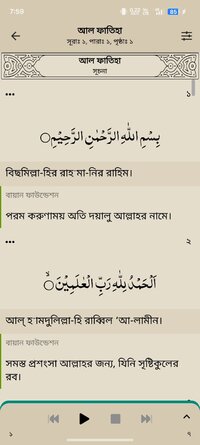 7:59
85
আল ফাতিহা
সূরাঃ ১, পারাঃ ১, পৃষ্ঠাঃ ১
আল ফাতিহা
সূচনা
১
بِسْمِ اللّٰهِ الرَّحْمٰنِ الرَّحِيْمِ
বিছমিল্লা-হির রাহ মা-নির রাহিম।
বায়ান ফাউন্ডেশন
পরম করুণাময় অতি দয়ালু আল্লাহর নামে।
২
اَلْحَمْدُ لِلّٰهِ رَبِّ الْعٰلَمِيْنَۙ
আল্ হামদুলিল্লা-হি রাব্বিল ‘আ-লামীন।
বায়ান ফাউন্ডেশন
সমস্ত প্রশংসা আল্লাহর জন্য, যিনি সৃষ্টিকুলের
রব।
১
৭